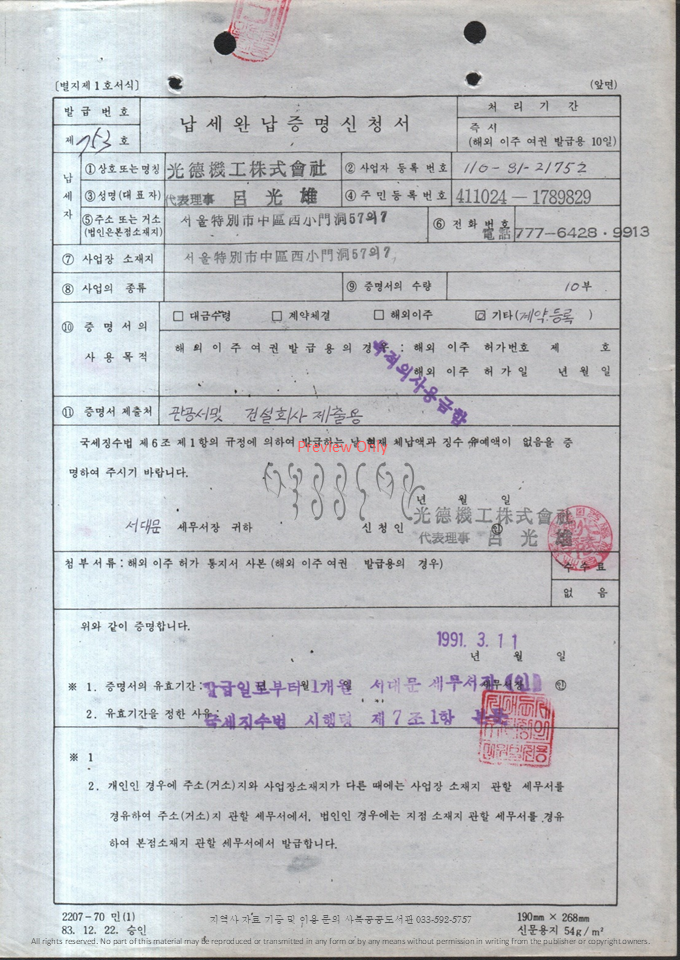 [별지제1호서식] (앞면)
발급번호
제 753 호
납세완납증명신청서
처리기간
즉서
(해외 이주 여권 발급용 10일)
납세자
①상호또는명칭 光德機工株式會社 ②사업자 등록 번호 110-81-21752
③성명(대표자) 代表理事 呂光雄 ④주민등록번호 411024-1789829
⑤주소 또는 거소 (법인은본점소재지) 서울特別市中區西小門洞57의7 ⑥전화 번호 電話 777-6428·9913
⑦ 사업장 소재지 서울特別市中區西小門洞57의7,
⑧ 사업의 종류 ⑨ 증명서의 수량 10부
⑩ 증명서의 사용목적 대금수령 계약체결 해외이주 기타(계약.등록)
해외이주여권발급용의경우: 해외 이주 허가번호 제 호
해외 이주 허가일 년 월 일
목적외사용금함
⑪ 증명서 제출처 관공서및 건설회사 제출용
국세징수법 제6조 제1항의 규정에 의하여 발급하는 날 현재 체납액과 징수 유예액이 없음을 증
명하여 주시기 바랍니다.
Preview Only
년 월 일
서대문 세무서장 귀하 신청인 光德機工株式會社 ㊞
代表理事 呂光雄
첨부서류: 해외 이주 허가 통지서 사본 (해외 이주 여권 발급용의 경우)
수수료
없음
위와 같이 증명합니다.
1991. 3. 11
년 월 일
※ 1. 증명서의 유효기간: 발급일로부터 1개월 서대문 세무서장 ㊞
2. 유효기간을 정한 사유: 국세징수법 시행령 제7조1항
※ 1
2. 개인인 경우에 주소(거소)지와 사업장소재지가 다른 때에는 사업장 소재지 관할 세무서를
경유하여 주소(거소)지 관할 세무서에서, 법인인 경우에는 지점 소재지 관할 세무서를 경유
하여 본점소재지 관할 세무서에서 발급합니다.
2207-70 민(1)
83. 12. 22. 승인
지역사 자료 기증 및 이용 문의 사북공공도서관 033-592-5757
190mm × 268mm
신문용지 54g/m²
All rights reserved. No part of this material may be reproduced or transmitted in any form or by any means without permission in writing from the publisher or copyright owners.